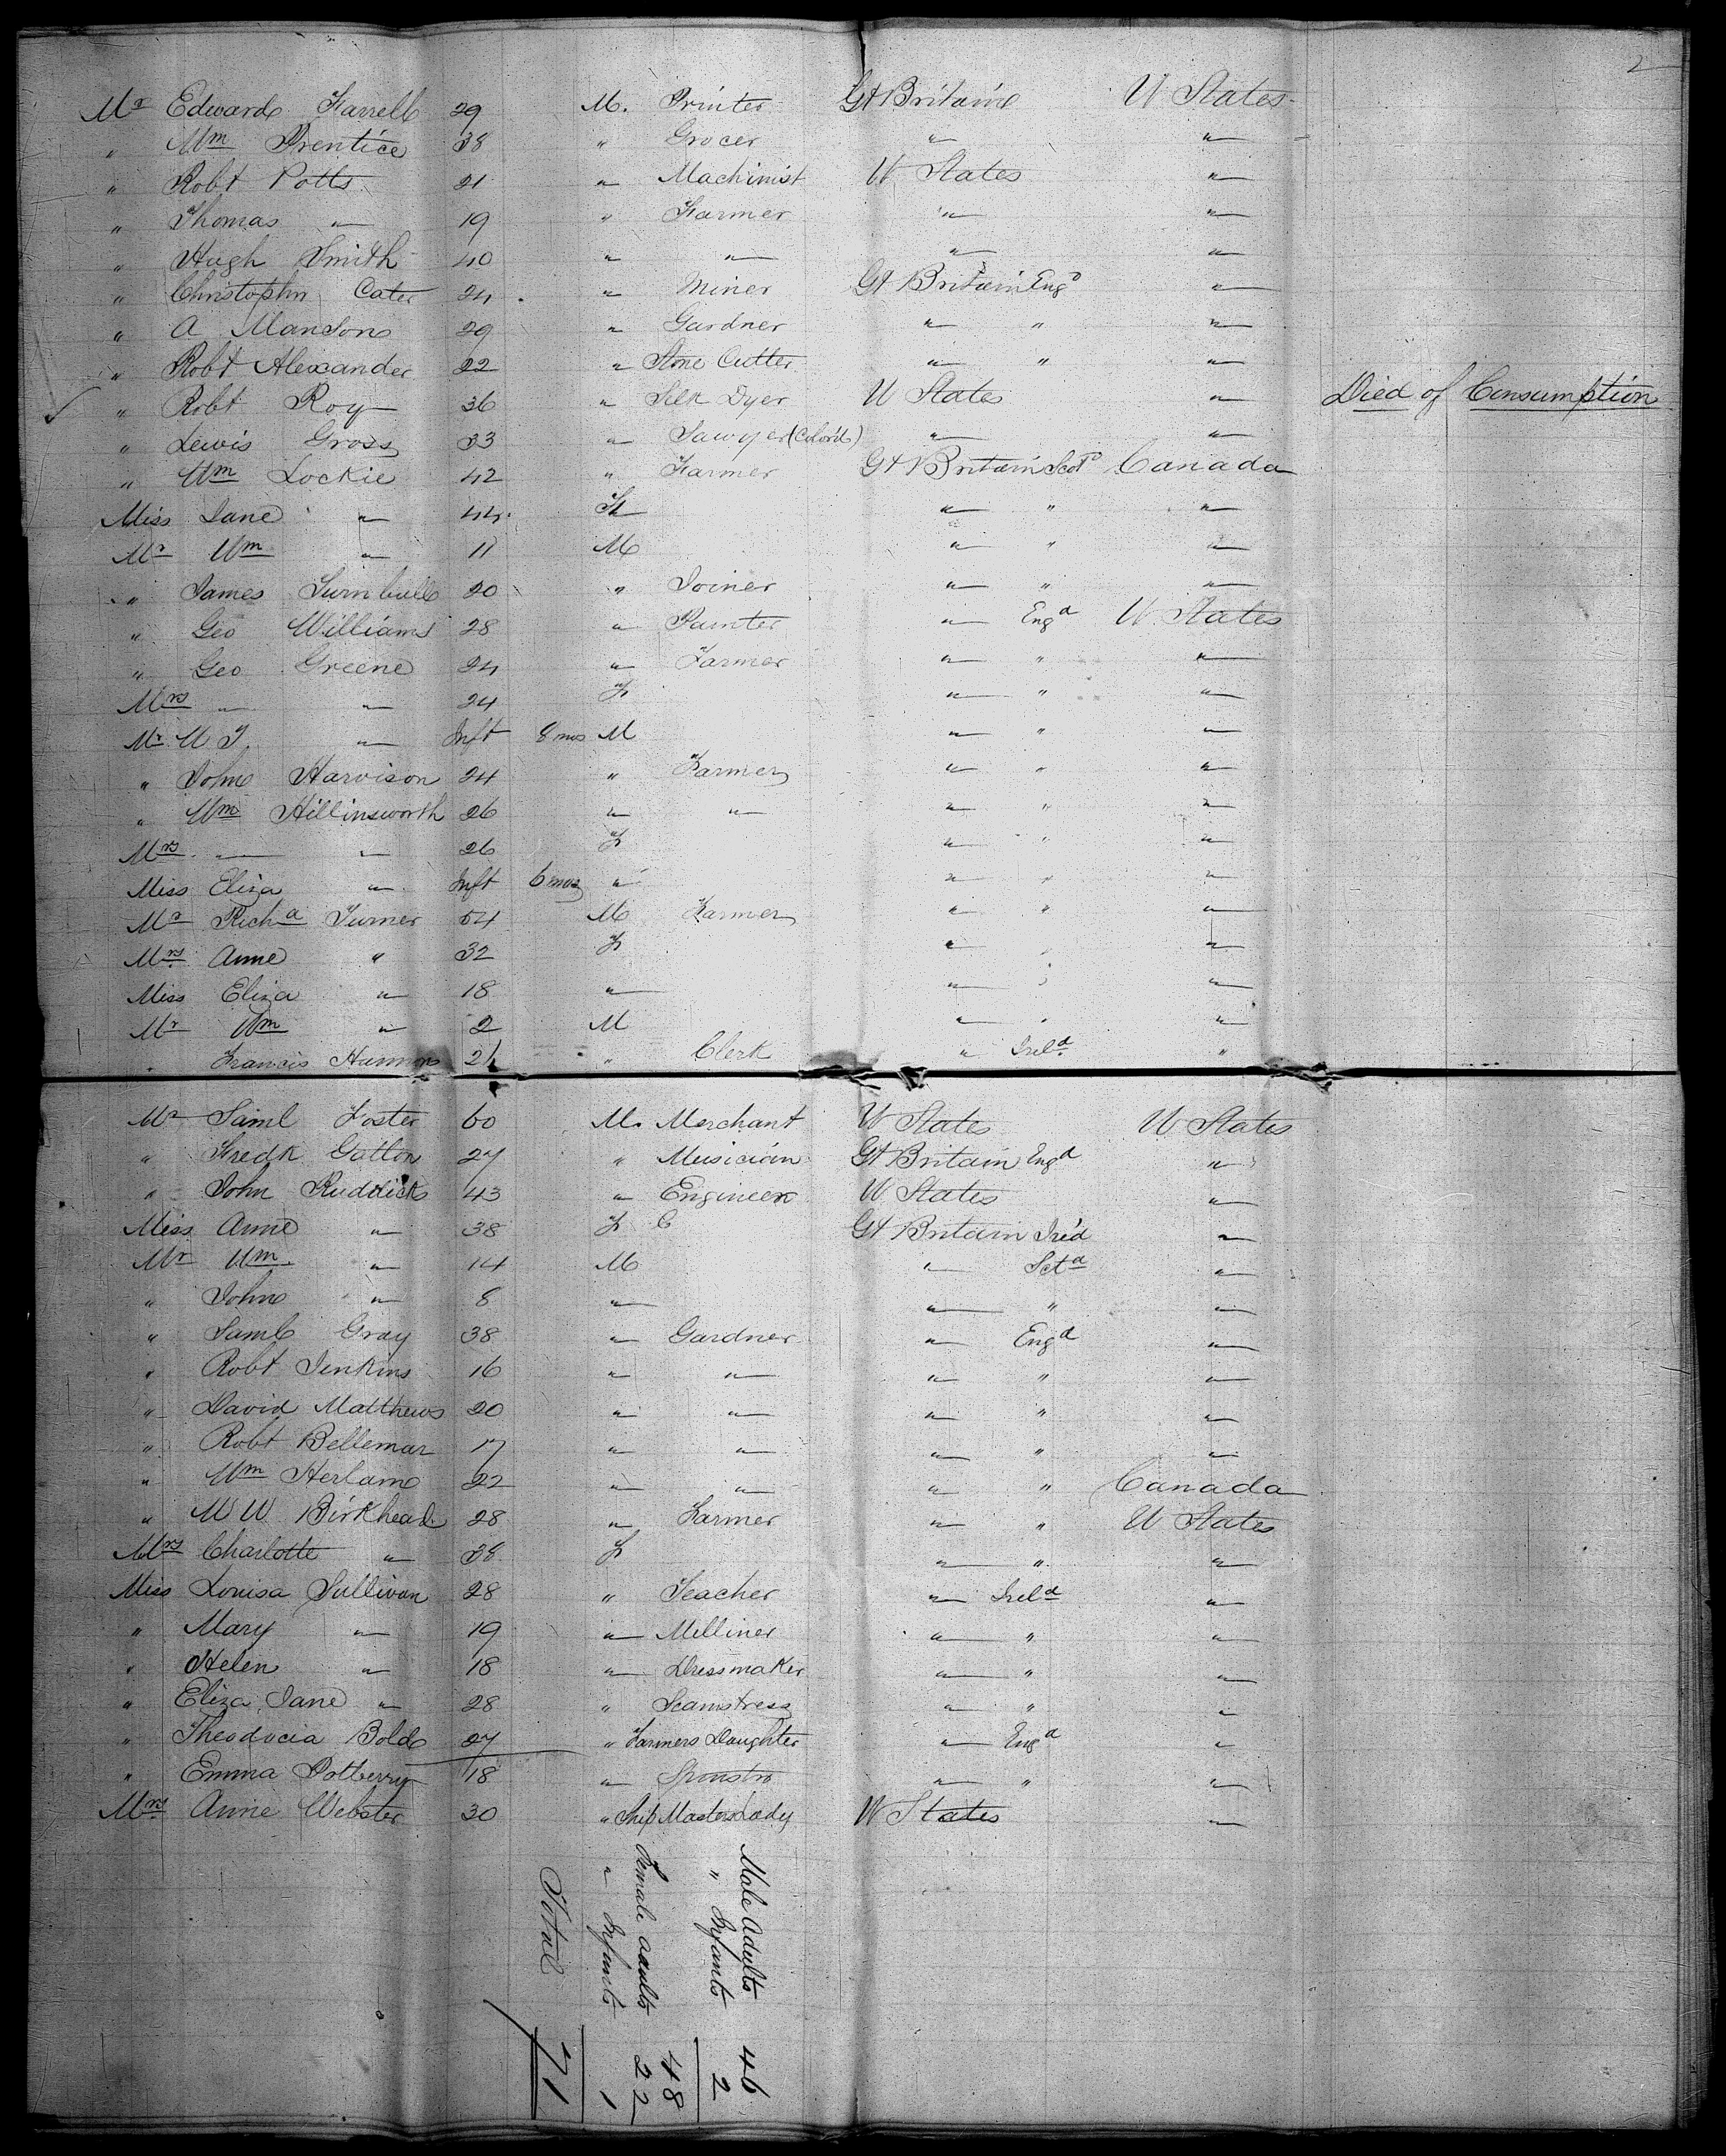 2
Mr Edward Farrell 29 M. Printer Gt Britain U States
" Wm Prentice 38 " Grocer " "
" Robt Potts 21 " Machinist U States "
" Thomas " 19 " Farmer " "
" Hugh Smith 40 " " " "
" Christophr Cater 24 " Miner Gt Britain Engd "
" A Manson 29 " Gardner " " "
" Robt Alexander 22 " Stone Cutter " " "
" Robt Roy 36 " Silk Dyer U States " Died of Consumption
" Lewis Gross 33 " Sawyer (Colord) " "
" Wm Lockie 42 " Farmer Gt Britain Scotd Canada
Miss Jane " 44 F " " "
Mr Wm " 11 M " " "
" James Turnbull 20 " Joiner " " "
" Geo Williams 28 " Painter " Engd U States
" Geo Greene 24 " Farmer " " "
Mrs " " 24 F " " "
Mr W J. " Inft 8 mos M " " "
" John Harvison 24 " Farmer " " "
" Wm Hillinsworth 26 " " " " "
Mrs " " 26 F " " "
Miss Eliza " Inft 6 mos " " " "
Mr Richd Turner 54 M Farmer " " "
Mrs Anne " 32 F " " "
Miss Eliza " 18 " " " "
Mr Wm " 2 M " " "
" Francis Hammons " Clerk " Ireld "
Mr Saml Foster 60 M. Merchant U States U States
" Fredk Gatton 27 " Musician Gt Britain Engd "
" John Ruddick 43 " Engineer U States "
Miss Anne " 38 F Gt Britain Ire'd "
Mr Wm " 14 M " Sctd "
" John " 8 " " " "
" Saml Gray 38 " Gardner " Engd "
" Robt Jenkins 16 " " " " "
" David Matthews 20 " " " " "
" Robt Bellemar 17 " " " " "
" Wm Herlame 22 " " " " Canada
" W W Birkhead 28 " Farmer " " U States
Mrs Charlotte " 38 F " " "
Miss Louisa Sullivan 28 " Teacher " Ireld "
" Mary " 19 " Milliner " " "
" Helen " 18 " Dressmaker " " "
" Eliza Jane " 28 " Seamstress " " "
" Theodocia Bold 27 " Farmers Daughter " Engd "
" Emma Potberry 18 " Spinstr " " "
Mrs Anne Webster 30 " Ship Masters Lady U States "
Male Adults 46
" Infants 2
48
Female adults 22
" Infants 1
Total 71